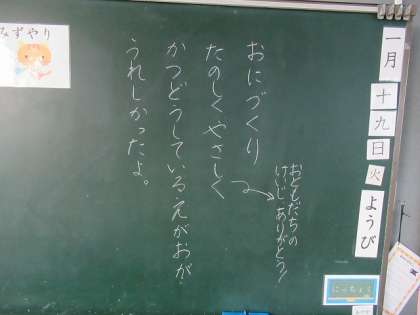 一月
十九日
火
ようび
おにづくり
たのしくやさしく
かつどうしているえがおが
うれしかったよ。
おともだちの
けいじ ありがとう!
みずやり
にっちょく